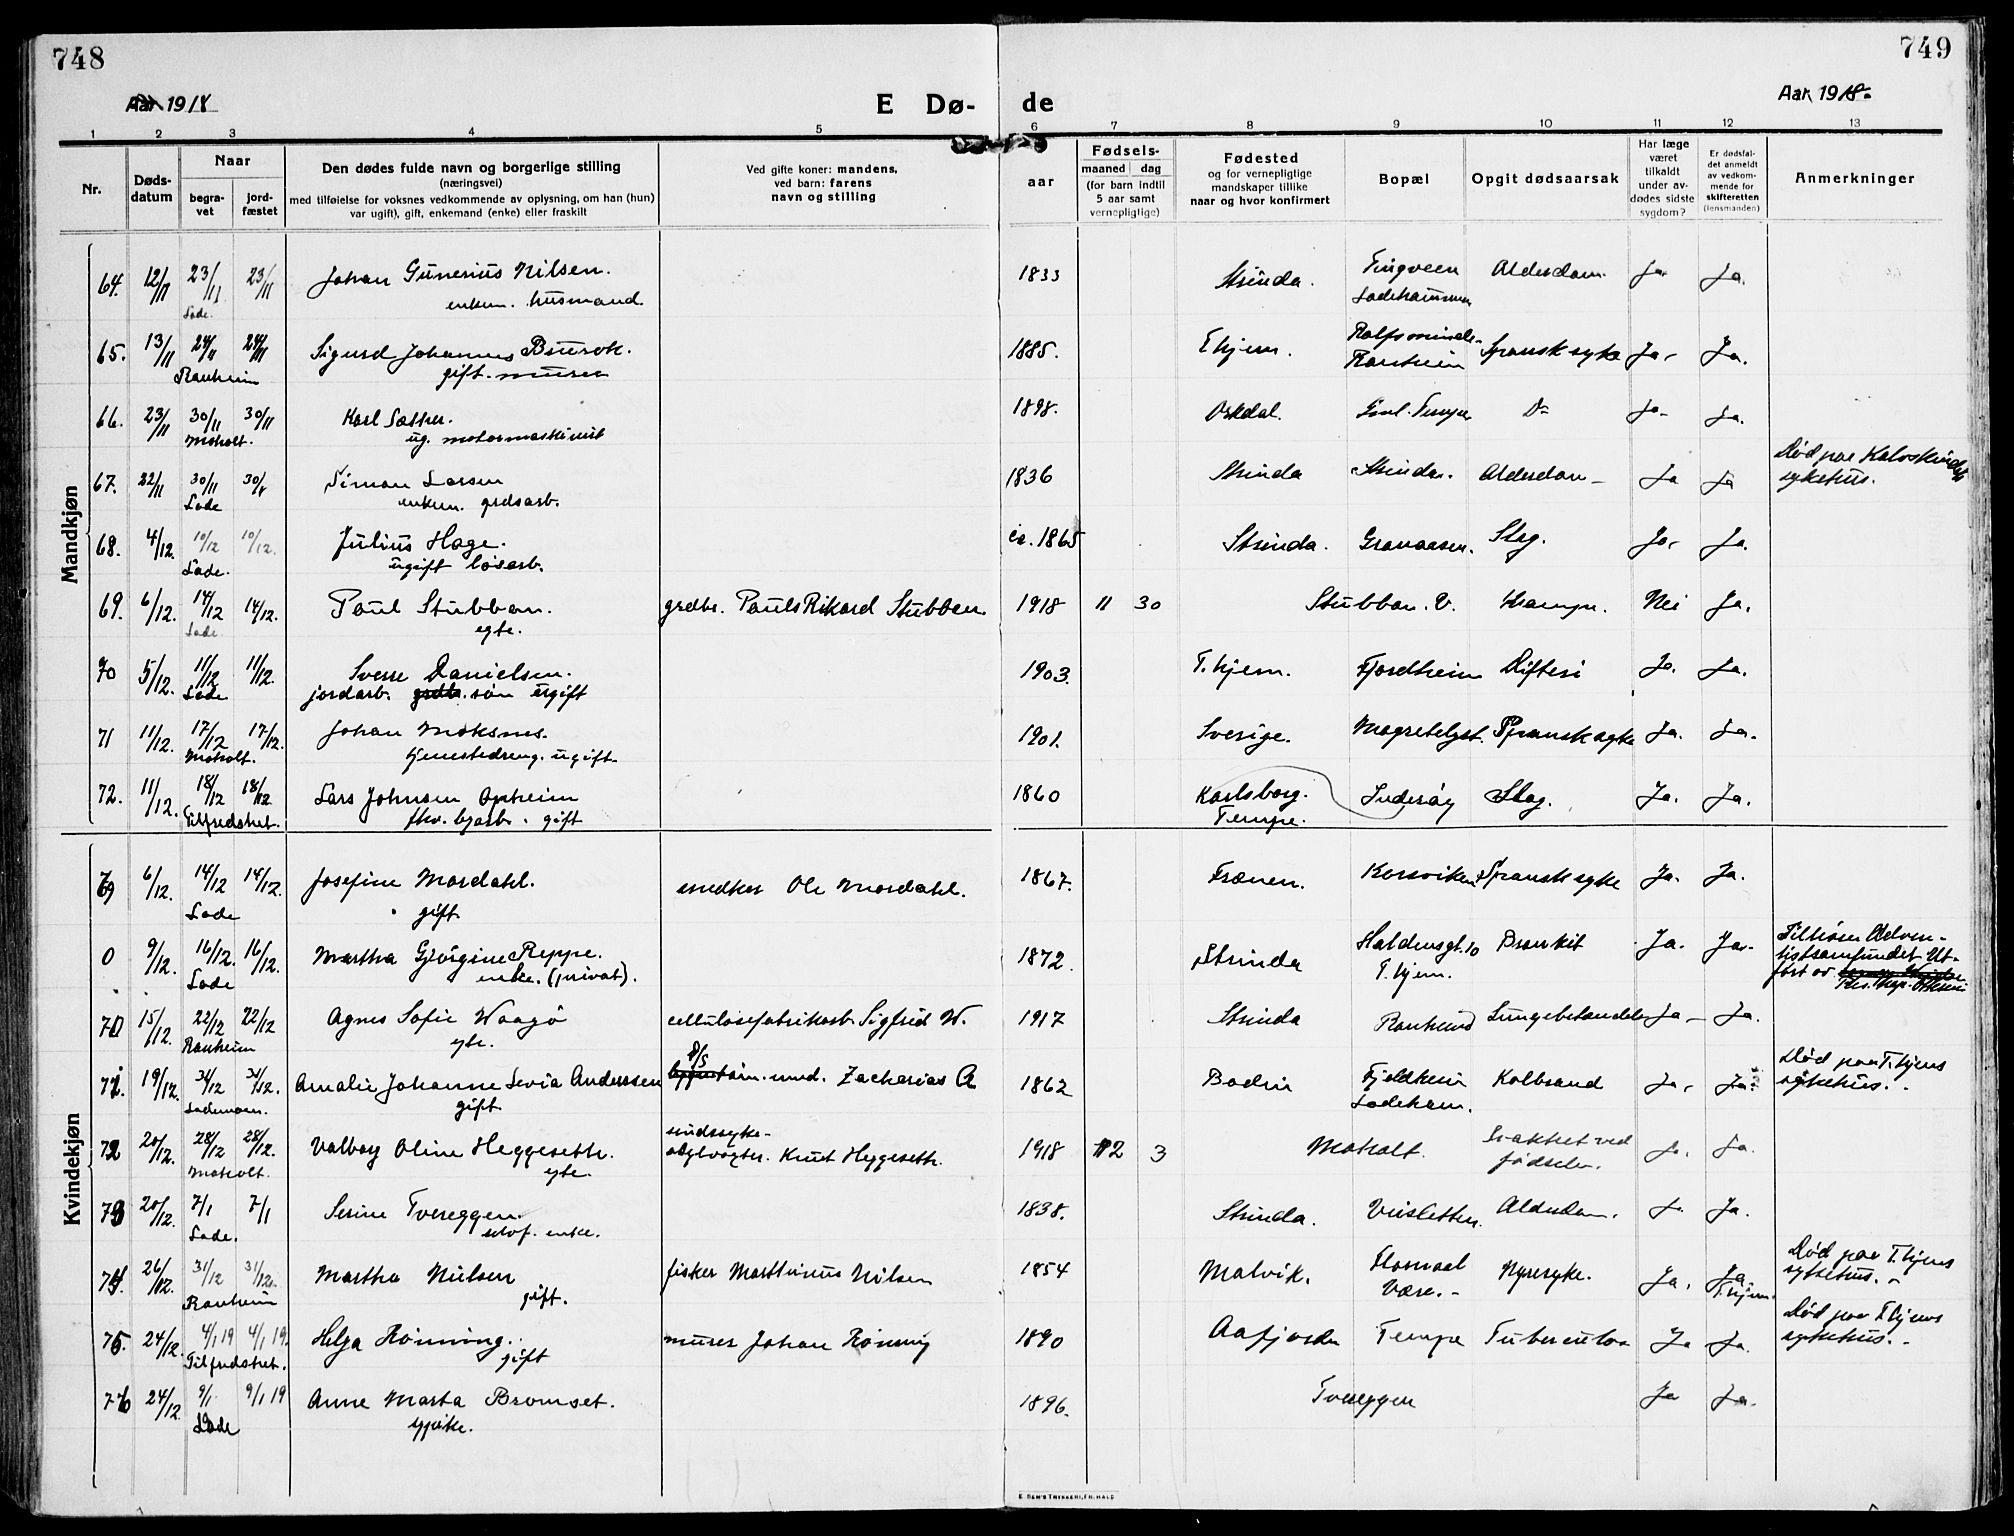 748
749
Aar 1918
E Dø- de
Aar 1918.
1 2 3 4 5 6 7 8 9 10 11 12 13
Nr.
Døds-
datum
Naar
begra-
vet
jord-
fæstet
Den dødes fulde navn og borgerlige stilling
(næringsvei)
med tilføielse for voksnes vedkommende av oplysning, om han (hun)
var ugift), gift, enkemand (enke) eller fraskilt
Ved gifte koner: mandens,
ved barn: farens
navn og stilling
aar
Fødsels-
maaned dag
(for barn indtil
5 aar samt
vernepligtige)
Fødested
og for vernepligtige
mandskaper tillike
naar og hvor konfirmert
Bopæl
Opgit dødsaarsak
Har læge
været
tilkaldt
under av-
dødes sidste
sygdom?
Er dødsfal-
det anmeldt
av vedkom-
mende for
skifteretten
(lensmanden)
Anmerkninger
Mandkjøn
64. 12/11 23/11 23/11 Johan Gunerius Nilsen. 1833 Strinda. Alderdom. Ja Ja.
Lade. enkem. husmand. Ladehammeren
65. 13/11 24/11 24/11 Sigurd Johannes Buurok. 1885. T.hjem. Rolfsminde- Spansk syke Ja- Ja.
Ranheim gift. murer Ranheim
66. 23/11 30/11 30/11 Karl Sætter. 1898. Orkdal. Tempe D- Ja- Ja.
Moholt. ug. motormaskinist
67. 22/11 30/11 30/11 Simon Larsen 1836 Strinda Strinda. Alderdom- Ja Ja Død paa Kalvskindets
Lade enkem. grdsarb. sykehus.
68. 4/12. 10/12 10/12. Julius Hage. ca. 1865 Strinda. Granaasen. Slag. Ja- Ja.
Lade. ugift løsarb.
69. 6/12. 14/12 14/12. Paul Stubban. grdbr. Pauls Rikard Stubben 1918 11 30 Stubban. V. Krampe. Nei Ja.
Lade. egte.
70 5/12. 11/12 11/12. Sverre Danielsen. 1903. T.hjem. Fjordheim Difteri Ja. Ja.
Lade jordarb. grdbr. søn ugift
71 11/12. 17/12 17/12. Johan Moksnes. 1901. Sverige. Magretelyst. Spansk syke Ja. Ja.
Moholt. tjenestedreng. ugift.
72. 11/12. 18/12 18/12 Lars Johnsen Opheim 1860 Karlsborg. Inderøy Slag. Ja. Ja.
Tilfredshet. fhv. bjarb. gift Tempe.
Kvindekjøn
69 6/12. 14/12 14/12. Josefine Mordahl. snedker Ole Mordahl. 1867. Frænen. Korsviken Spansk syke Ja. Ja.
Lade gift
0 9/12. 16/12. 16/12. Martha Gjørgine Reppe. 1872. Strinda Haldensgt. 10 Bronkit Ja. Ja. Tilhører Adven-
Lade enke. (privat). T.hjem. tistsamfundet. Ut-
ført av
70 15/12. 22/12 22/12 Agnes Sofie Waagø cellulosefabrikarb. Sigfrid W. 1917 Strinda Ranheim Lungebetændelse Ja- Ja.
Ranheim egte.
71. 19/12. 31/12 31/12. Amalie Johanne Levia Anderssen Zacharias A 1862 Bodin Fjeldheim Kolbrand Ja. Ja. Død paa T.hjems
Lademoen. gift. Ladeham. sykehus.
72 20/12. 28/12 28/12. Valborg Oline Heggeseth. sindssyke-
Moholt. egte. asylvogter. Knut Heggeseth. 1918 12 3 Moholt. Svakhet ved Ja. Ja.
fødselen.
73 20/12. 7/1 7/1 Serine Tvereggen. 1838. Strinda. Alderdom. Ja. Ja.
Lade. enke.
74. 26/12. 31/12 31/12. Martha Nilsen fisker Marthinus Nilsen 1854 Malvik. Nyresyke. Ja. Ja Død paa T.hjems
Ranheim gift. Være.- T.hjem. sykehus.-
75. 24/12. 4/1 19 4/1 19. Helga Rønning. murer Johan Rønning 1890 Aafjorden Tempe Tuberculose Ja Ja. Død paa T.hjems
Tilfredshet. gift sykehus.-
76 24/12. 9/1 9/1 19 Anne Marta Bromset. 1896. Tvereggen Ja Ja.
Lade
E SEM'S TRYKKERI, FR.HALD